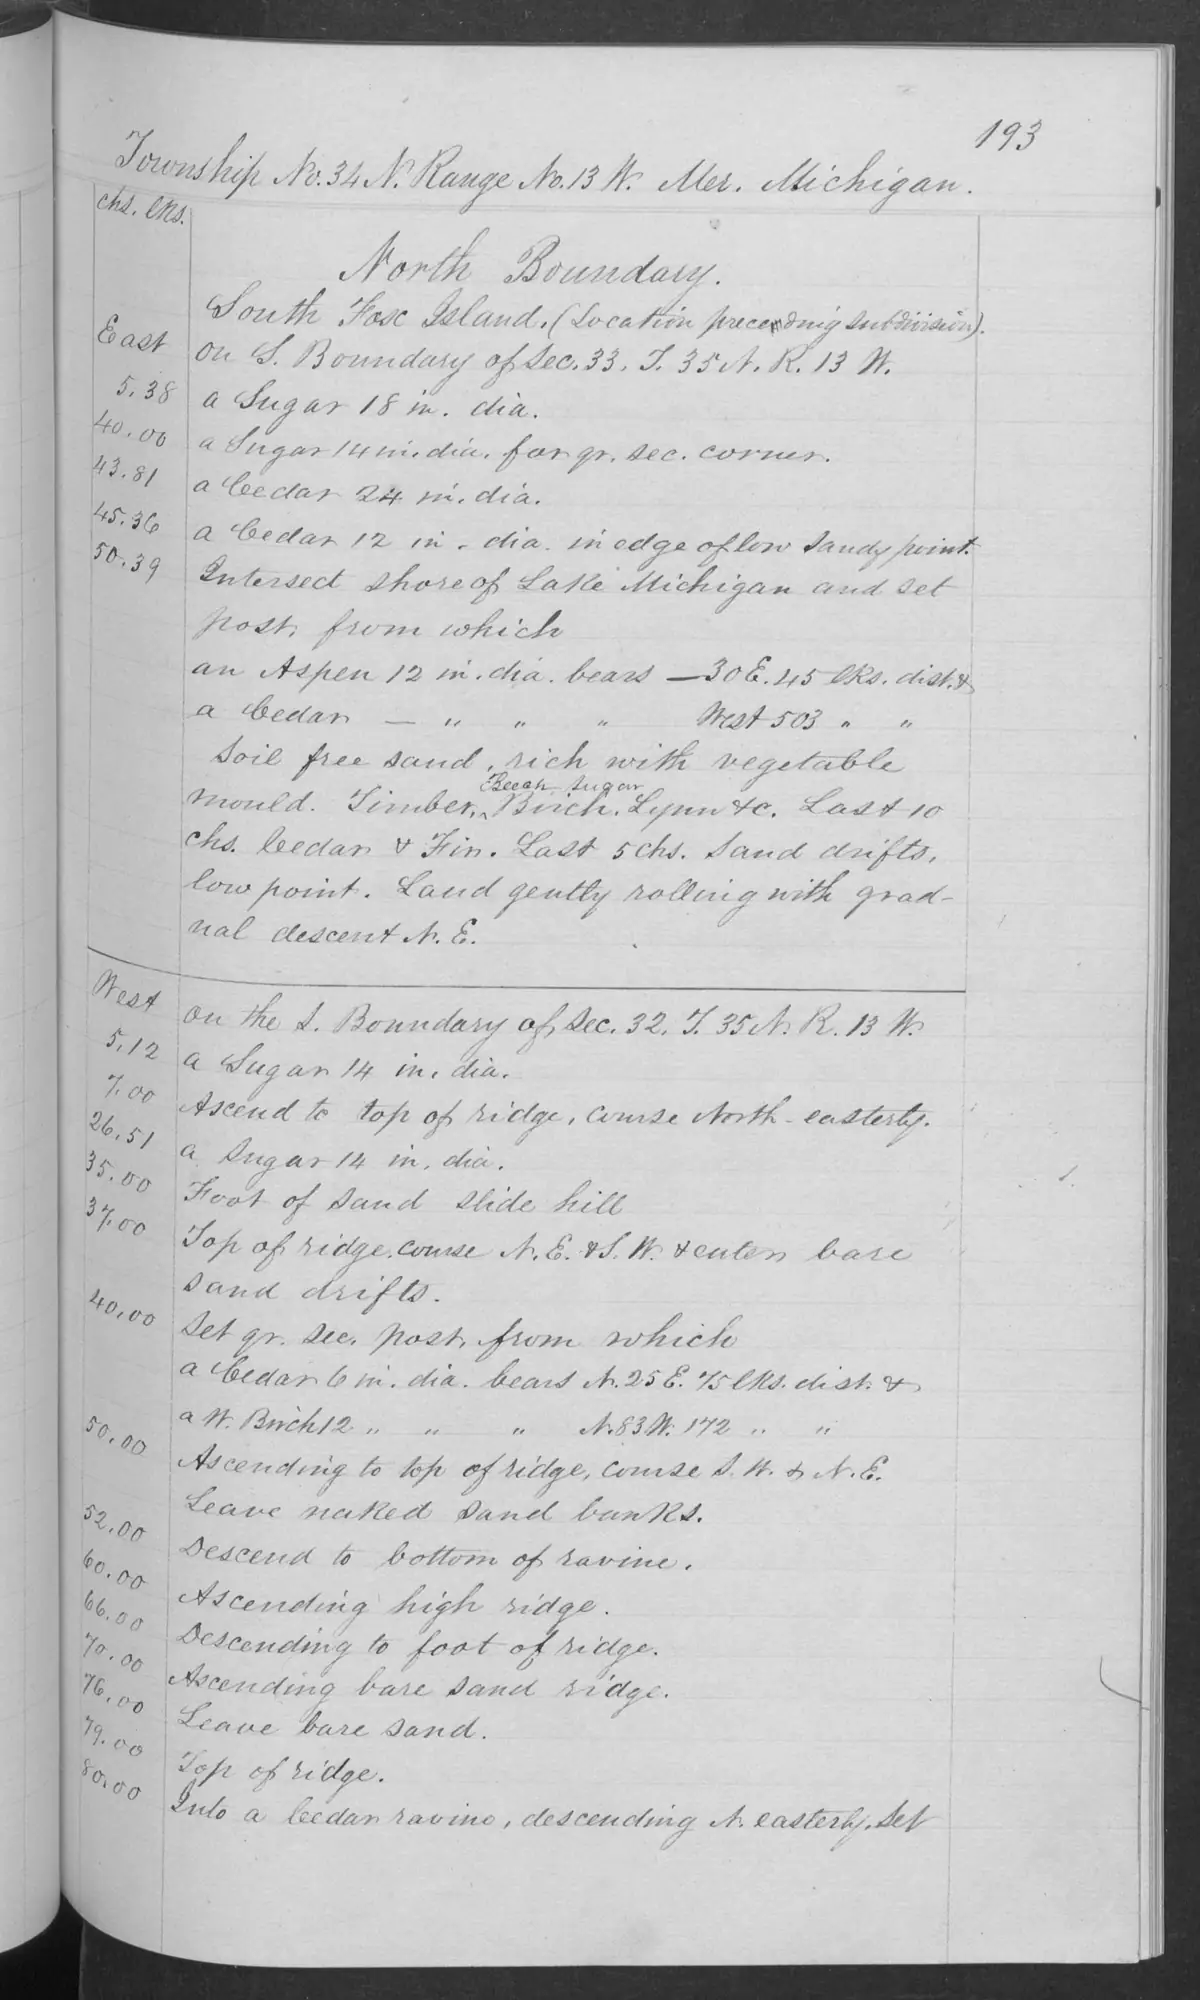 193
Township No. 34 N. Range No. 13 W. Mer. Michigan.
chs. lks.
North Boundary.
South Fox Island. (Location preceeding subdivision).
East on S. Boundary of Sec. 33. T. 35 N. R. 13 W.
5.38 a Sugar 18 in. dia.
40.00 a Sugar 14 in. dia. for qr. sec. corner.
43.81 a Cedar 24 in. dia.
45.36 a Cedar 12 in. dia. in edge of low sandy point.
50.39 Intersect shore of Lake Michigan and set
post, from which
an Aspen 12 in. dia. bears — 30 E. 45 lks. dist. &
a Cedar — " " " West 503 " "
Soil free sand, rich with vegetable
Beech Sugar
mould. Timber, ^ Birch. Lynn &c. Last 10
chs. Cedar & Fir. Last 5 chs. Sand drifts,
low point. Land gently rolling with grad-
ual descent N. E.
West on the S. Boundary of Sec. 32. T. 35 N. R. 13 W.
5.12 a Sugar 14 in. dia.
7.00 Ascend to top of ridge, course North-easterly.
26.51 a Sugar 14 in. dia.
35.00 Foot of sand slide hill
37.00 Top of ridge. course N. E. & S. W. & enter bare
sand drifts.
40.00 Set qr. sec. post, from which
a Cedar 6 in. dia. bears N. 25 E. 75 lks. dist. &
a W. Birch 12 " " " N. 83 W. 172 " "
50.00 Ascending to top of ridge, course S. W. & N. E.
Leave naked sand banks.
52.00 Descend to bottom of ravine.
60.00 Ascending high ridge.
66.00 Descending to foot of ridge.
70.00 Ascending bare sand ridge.
76.00 Leave bare sand.
79.00 Top of ridge.
80.00 Into a Cedar ravine, descending N. easterly. Set